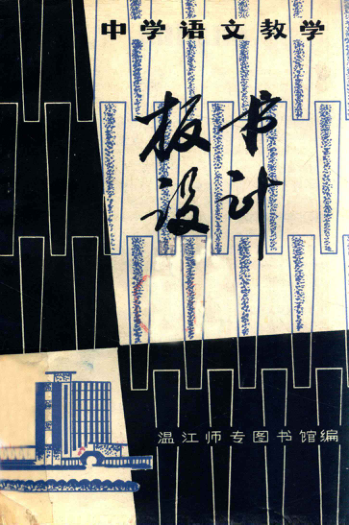 中学语文教学
板书
设计
温江师专图书馆编